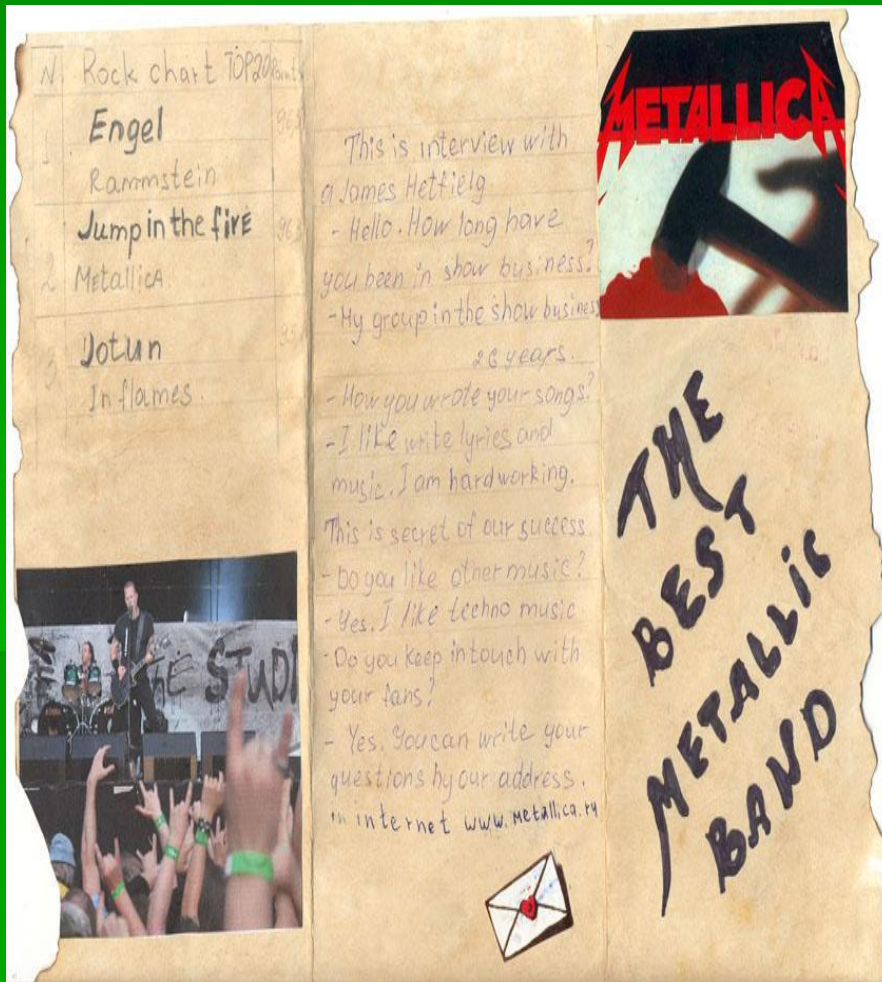 N Rock chart TOP20 Points
1 Engel
Rammstein
Jump in the fire
2 Metallica
3 Jotun
In flames.
THE STUDI
This is interview with
a James Hetfielg
- Hello. How long have
you been in show business?
- My group in the show business
26 years.
- How you wrote your songs?
- I like write lyrics and
music. I am hardworking.
This is secret of our success.
- Do you like other music?
- Yes. I like techno music
- Do you keep in touch with
your fans?
- Yes. You can write your
questions by our address.
in internet www.metallica.ru
METALLICA
THE
BEST
METALLIC
BAND